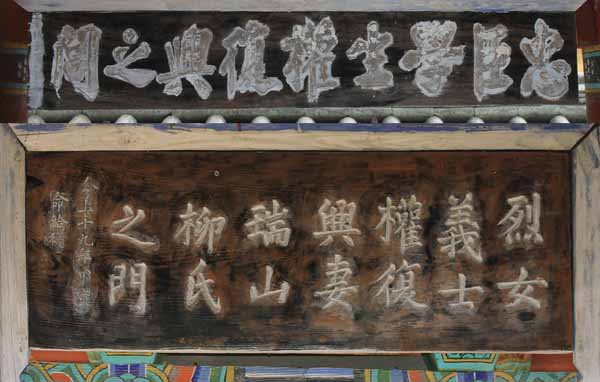 忠臣學生權復興之閭
烈女
義士
權復
興妻
瑞山
柳氏
之門